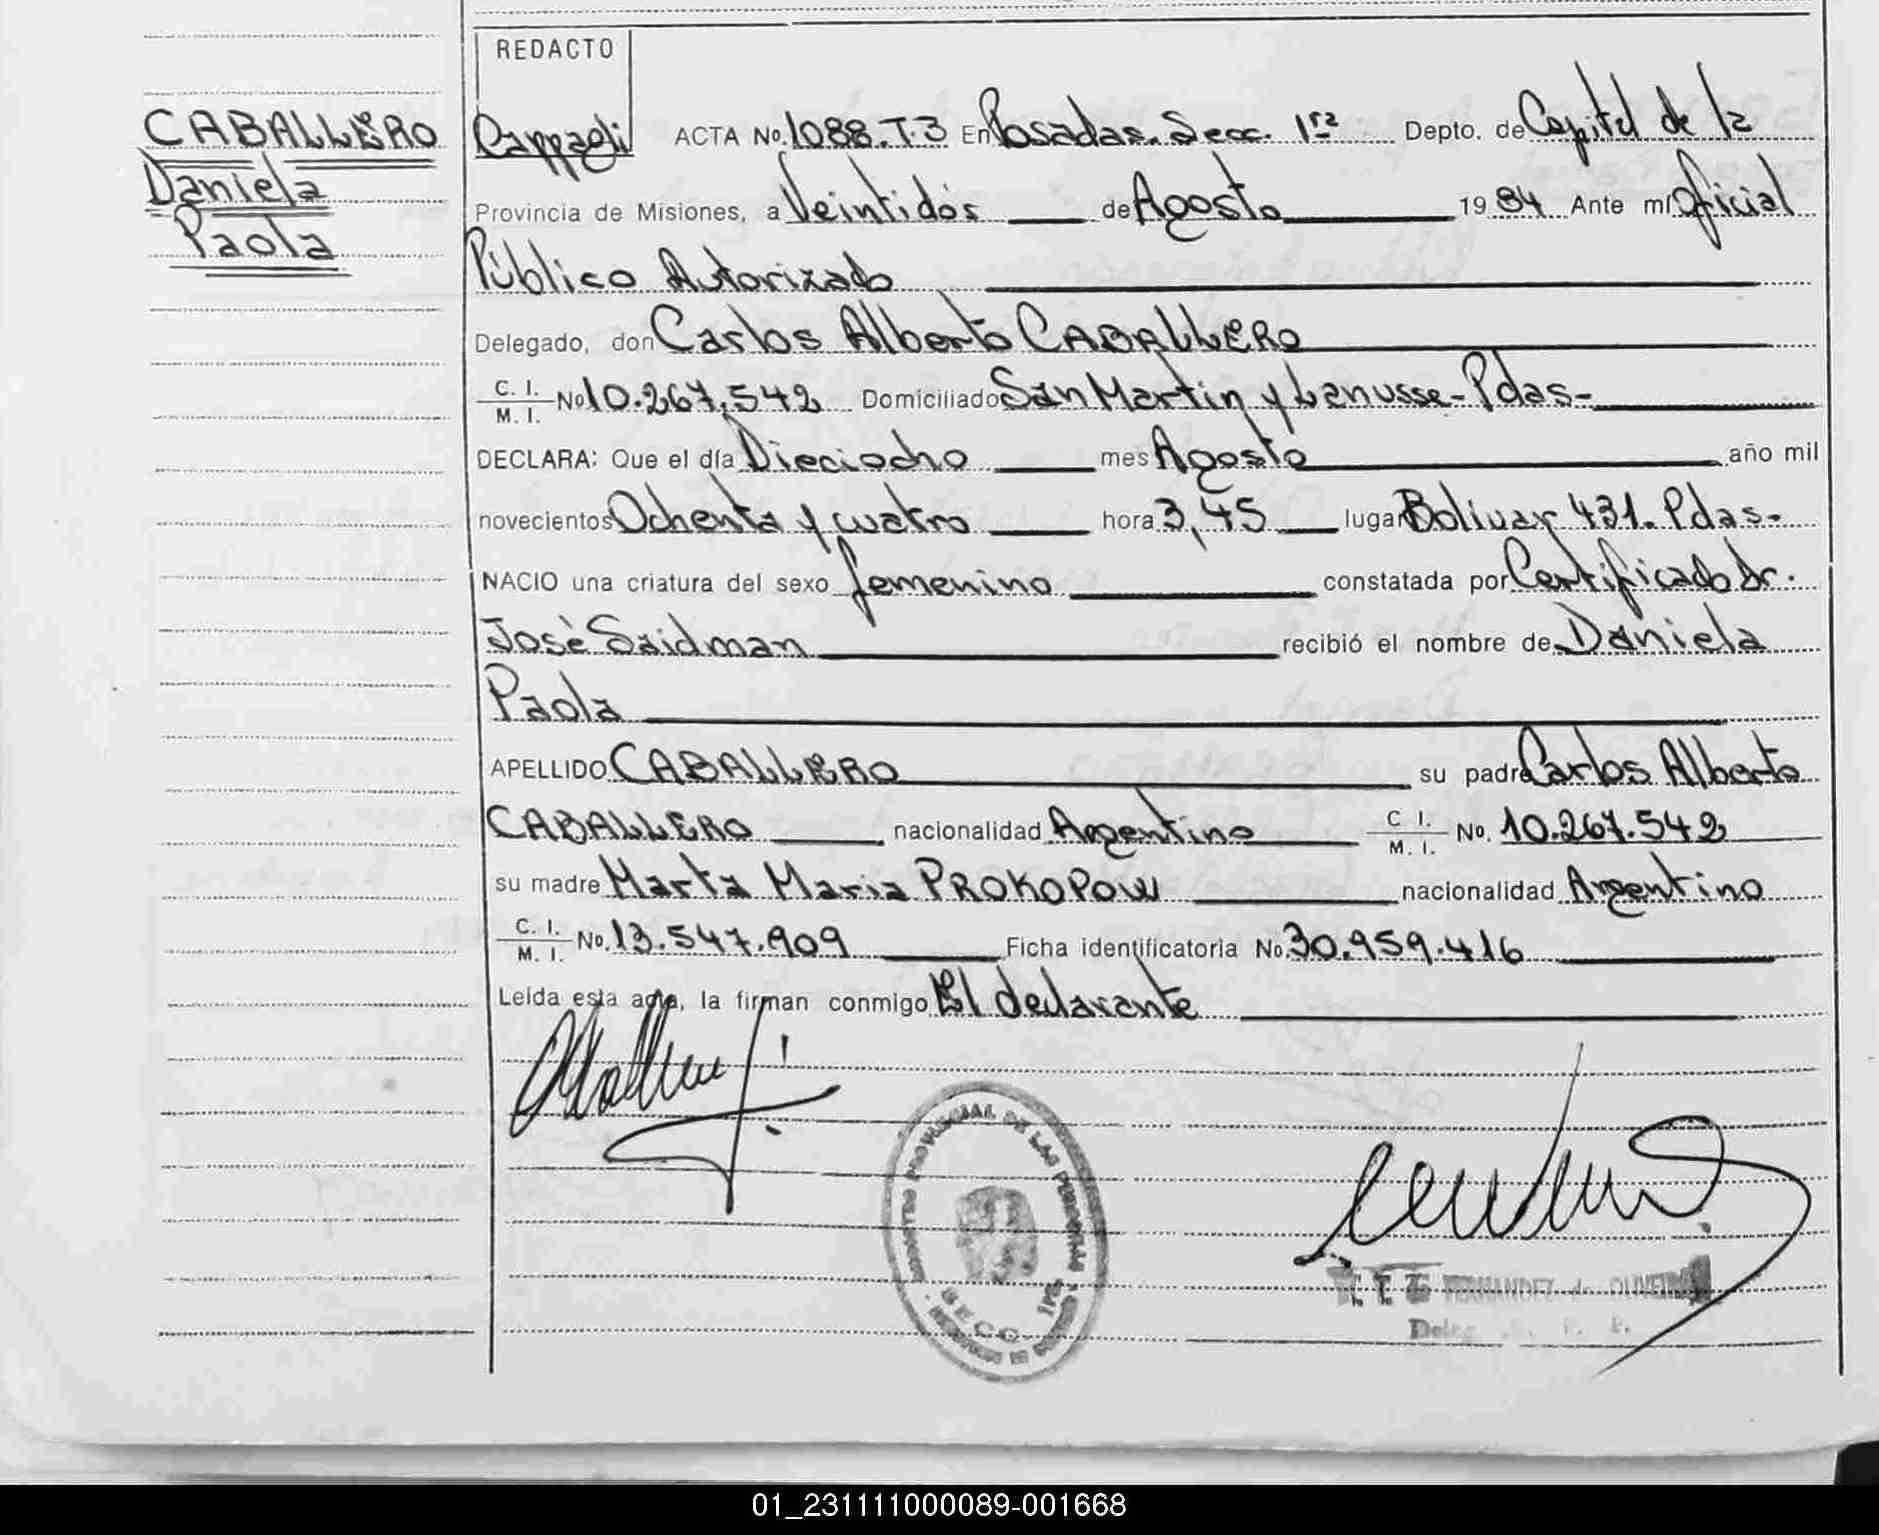 REDACTO
CABALLERO
Daniela
Paola
Cappagli ACTA No. 1088. T. 3 En Posadas. Secc. 1ra Depto. de Capital de la
Provincia de Misiones, a Veintidós de Agosto 19 84 Ante mí Oficial
Público Autorizado
Delegado, don Carlos Alberto CABALLERO
C. I. M. I. No 10.267.542 Domiciliado San Martin y Lanusse - Pdas-
DECLARA: Que el día Dieciocho mes Agosto año mil
novecientos Ochenta y cuatro hora 3,45 lugar Bolivar 431. Pdas-
NACIO una criatura del sexo femenino constatada por Certificado Dr.
José Saidman recibió el nombre de Daniela
Paola
APELLIDO CABALLERO su padre Carlos Alberto
CABALLERO nacionalidad Argentino C I. M. I. No. 10.267.542
su madre Marta Maria PROKOPOW nacionalidad Argentino
C. I. M. I. No. 13.547.909 Ficha identificatoria No. 30.959.416
Leída esta acta, la firman conmigo El declarante
PROVINCIAL DE LAS PERSONAS
SECC. 1ra
FERNANDEZ de OLIVEIRA
Deleg. R. P.
01_231111000089-001668